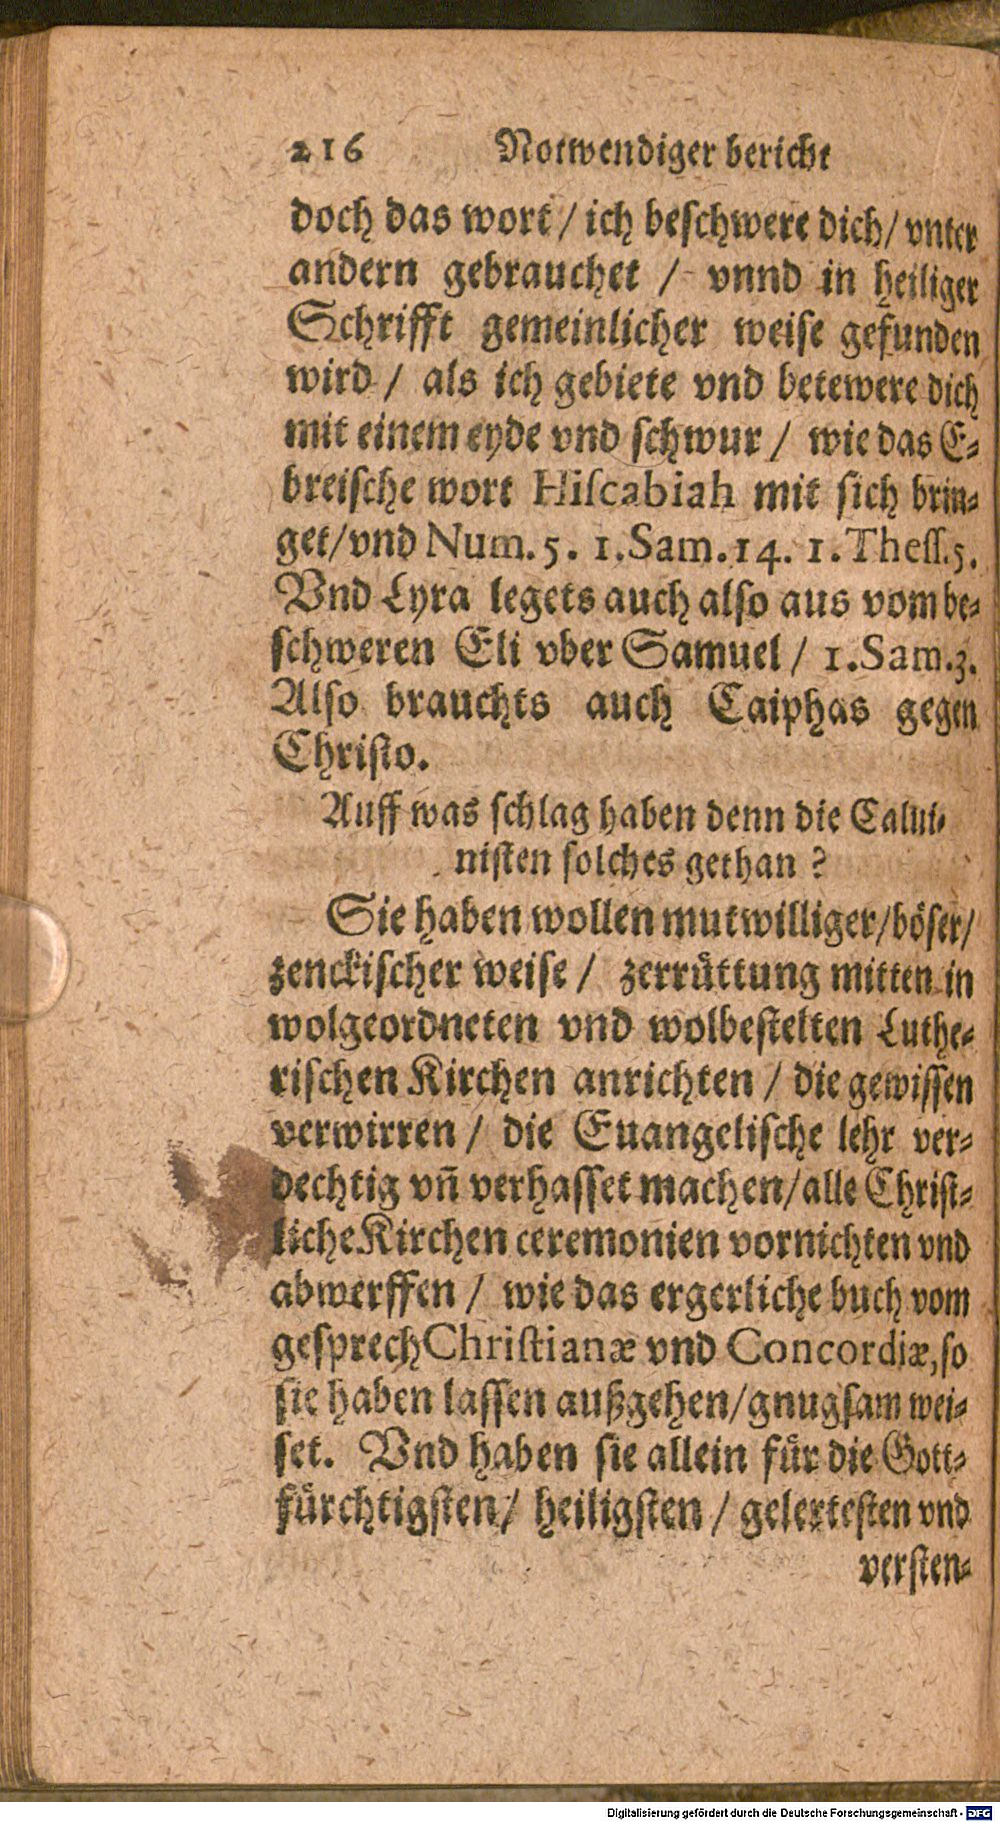 216 Notwendiger bericht
doch das wort / ich beschwere dich / vnter
andern gebrauchet / vnnd in heiliger
Schrifft gemeinlicher weise gefunden
wird / als ich gebiete vnd betewere dich
mit einem eyde vnd schwur / wie das E⸗
breische wort Hiſcabiah mit sich brin⸗
get / vnd Num. 5. 1. Sam. 14. 1. Theſſ. 5.
Vnd Lyra legets auch also aus vom be⸗
schweren Eli vber Samuel / 1. Sam. 3.
Also brauchts auch Caiphas gegen
Christo.
Auff was schlag haben denn die Calui⸗
nisten solches gethan ?
Sie haben wollen mutwilliger / böser /
zenckischer weise / zerrüttung mitten in
wolgeordneten vnd wolbestelten Luthe⸗
rischen Kirchen anrichten / die gewissen
verwirren / die Euangelische lehr ver⸗
dechtig vñ verhasset machen / alle Christ⸗
liche Kirchen ceremonien vornichten vnd
abwerffen / wie das ergerliche buch vom
gesprech Chriſtianæ vnd Concordiæ, so
sie haben lassen außgehen / gnugsam wei⸗
set. Vnd haben sie allein für die Gott⸗
fürchtigsten / heiligsten / gelertesten vnd
versten⸗
Digitalisierung gefördert durch die Deutsche Forschungsgemeinschaft - DFG